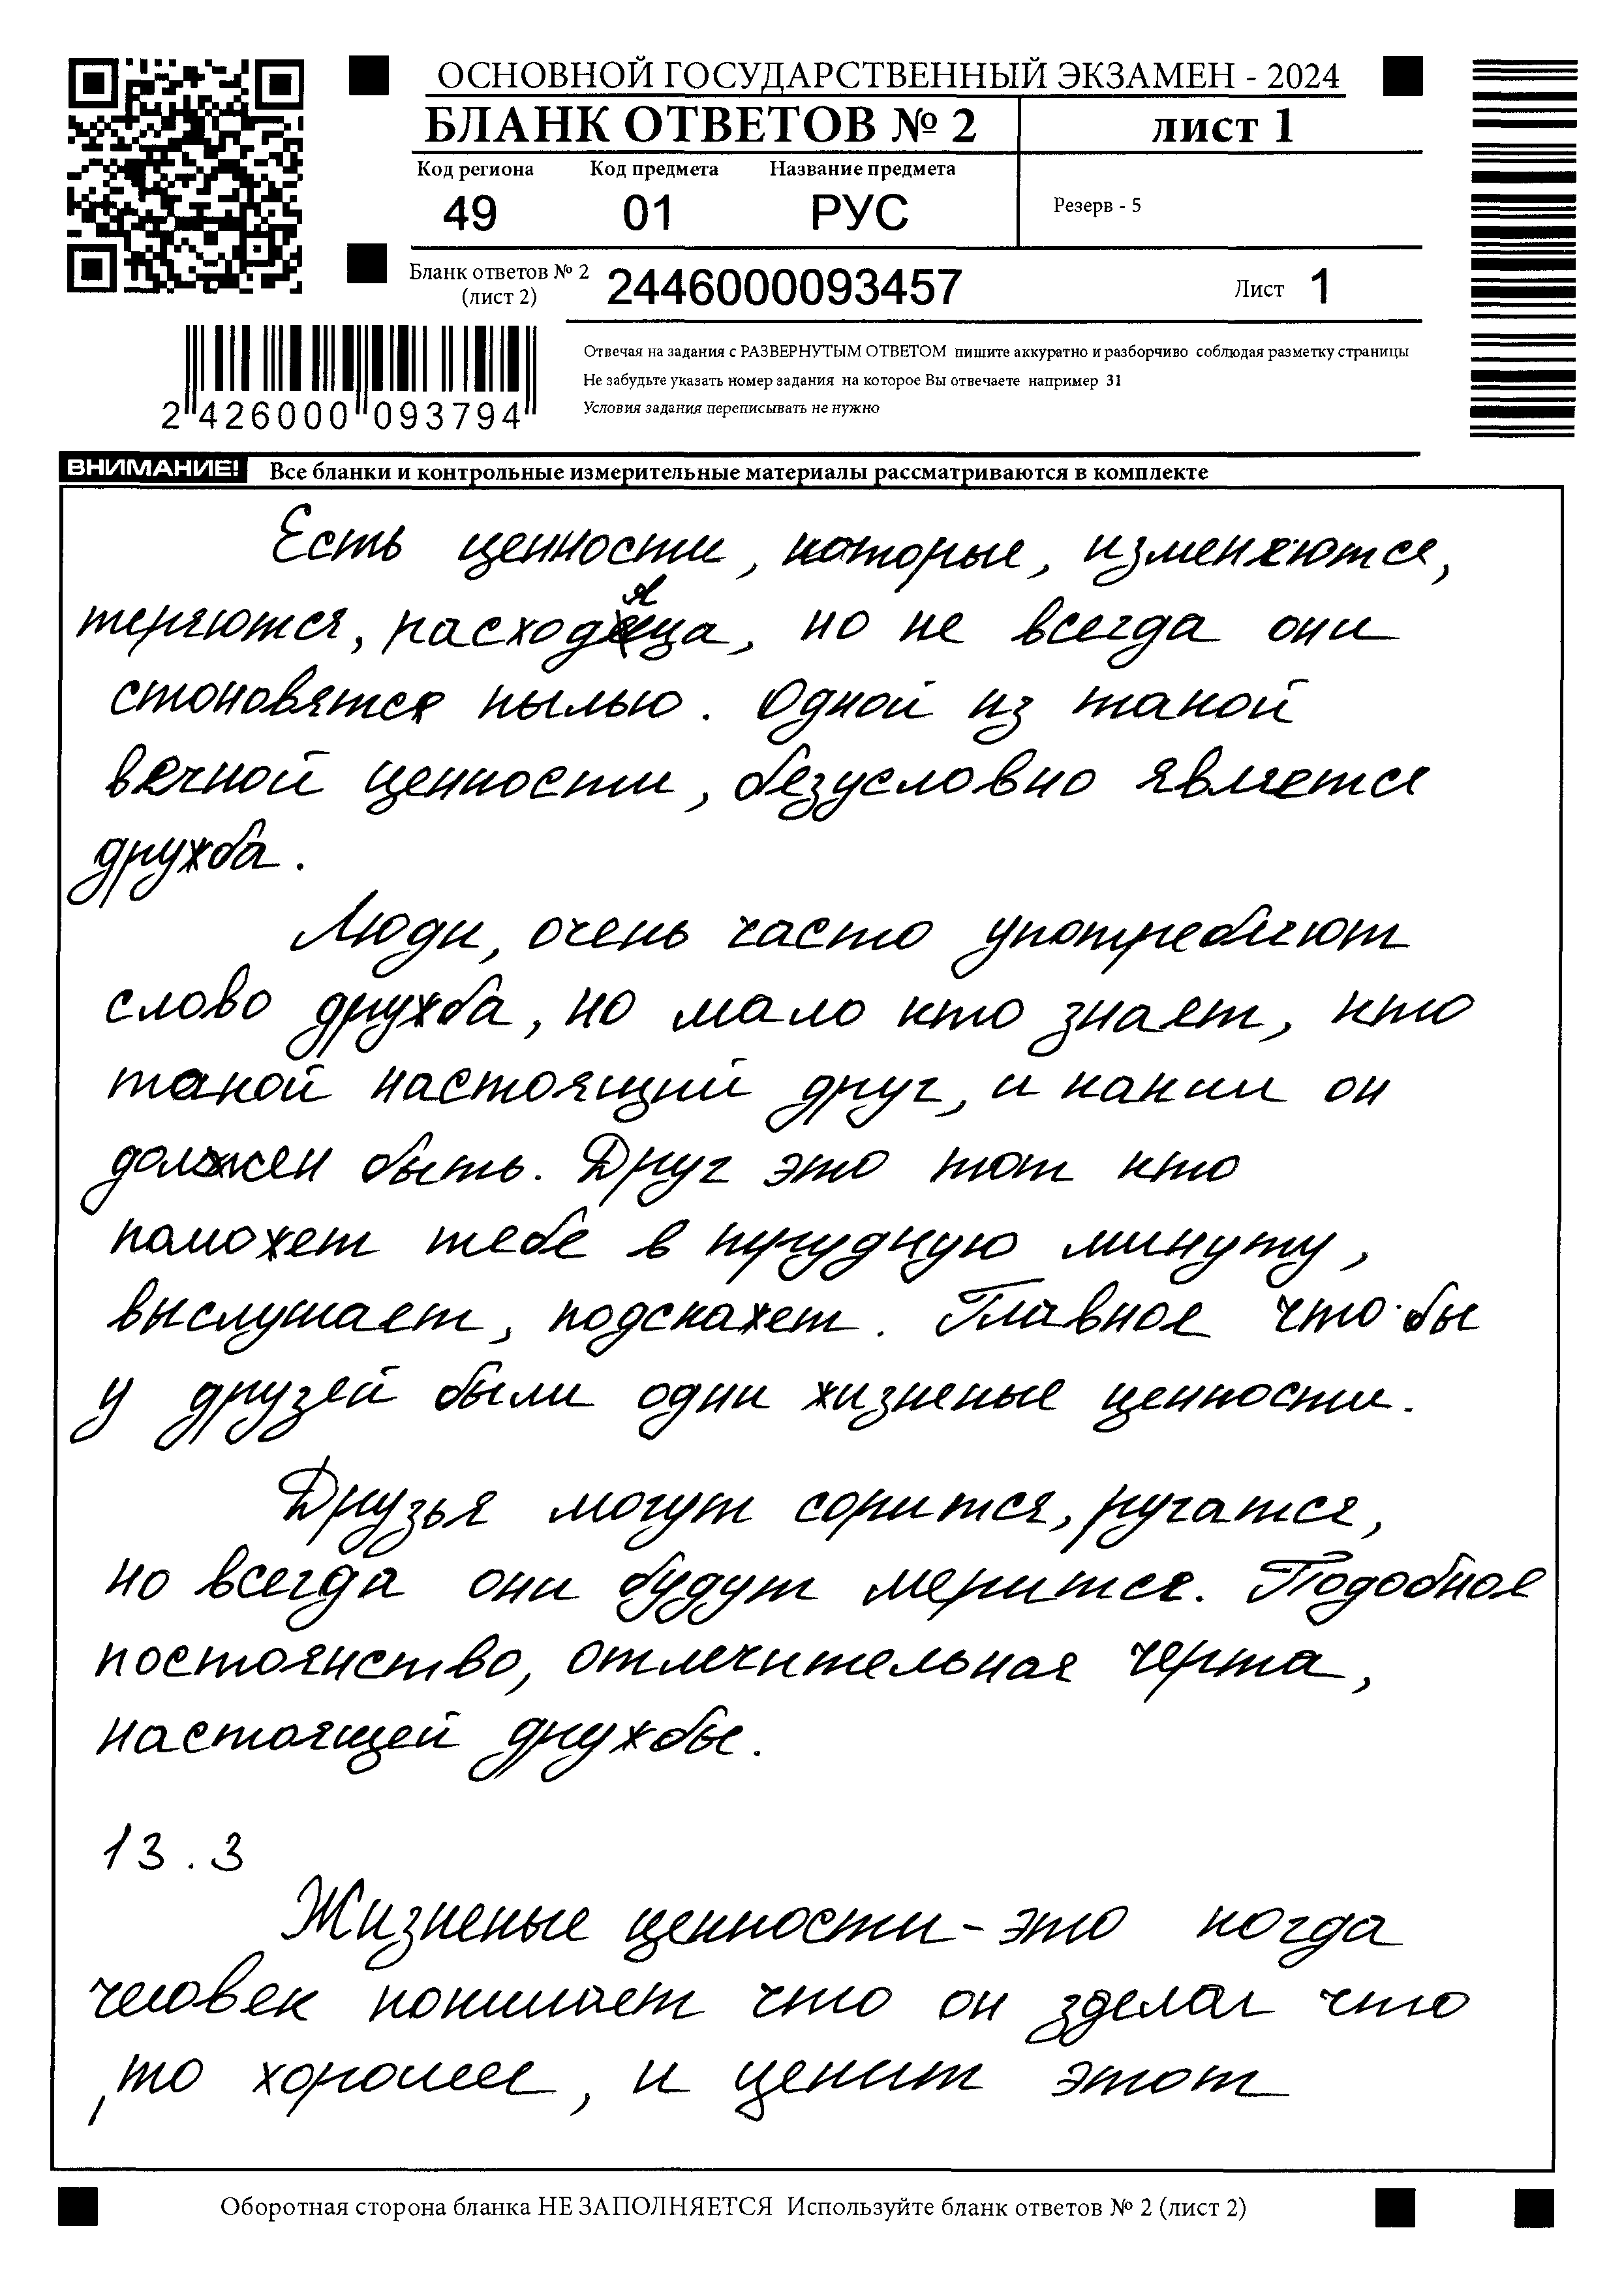 ОСНОВНОЙ ГОСУДАРСТВЕННЫЙ ЭКЗАМЕН - 2024
БЛАНК ОТВЕТОВ № 2
лист 1
Код региона
Код предмета
Название предмета
49
01
РУС
Резерв - 5
Бланк ответов № 2
(лист 2)
2446000093457
Лист 1
Отвечая на задания с РАЗВЕРНУТЫМ ОТВЕТОМ пишите аккуратно и разборчиво соблюдая разметку страницы
Не забудьте указать номер задания на которое Вы отвечаете например 31
Условия задания переписывать не нужно
2 426000 093794
ВНИМАНИЕ! Все бланки и контрольные измерительные материалы рассматриваются в комплекте
Есть ценности, которые, изменяются,
теряются, расходяца, но не всегда они
стоновятся пылью. Одной из такой
вечной ценности, безусловно является
дружба.
Люди, очень часто употребляют
слово дружба, но мало кто знает, кто
такой настоящий друг, и каким он
должен быть. Друг это тот кто
поможет тебе в трудную минуту,
выслушает, подскажет. Главное что бы
у друзей были одни жизненые ценности.
Друзья могут сорится, ругатся,
но всегда они будут мерится. Подобное
постоянство, отлечительная черта,
настоящей дружбы.
13.3
Жизненые ценности - это когда
человек понимает что он зделал что
то хорошее, и ценит этот
Оборотная сторона бланка НЕ ЗАПОЛНЯЕТСЯ Используйте бланк ответов № 2 (лист 2)